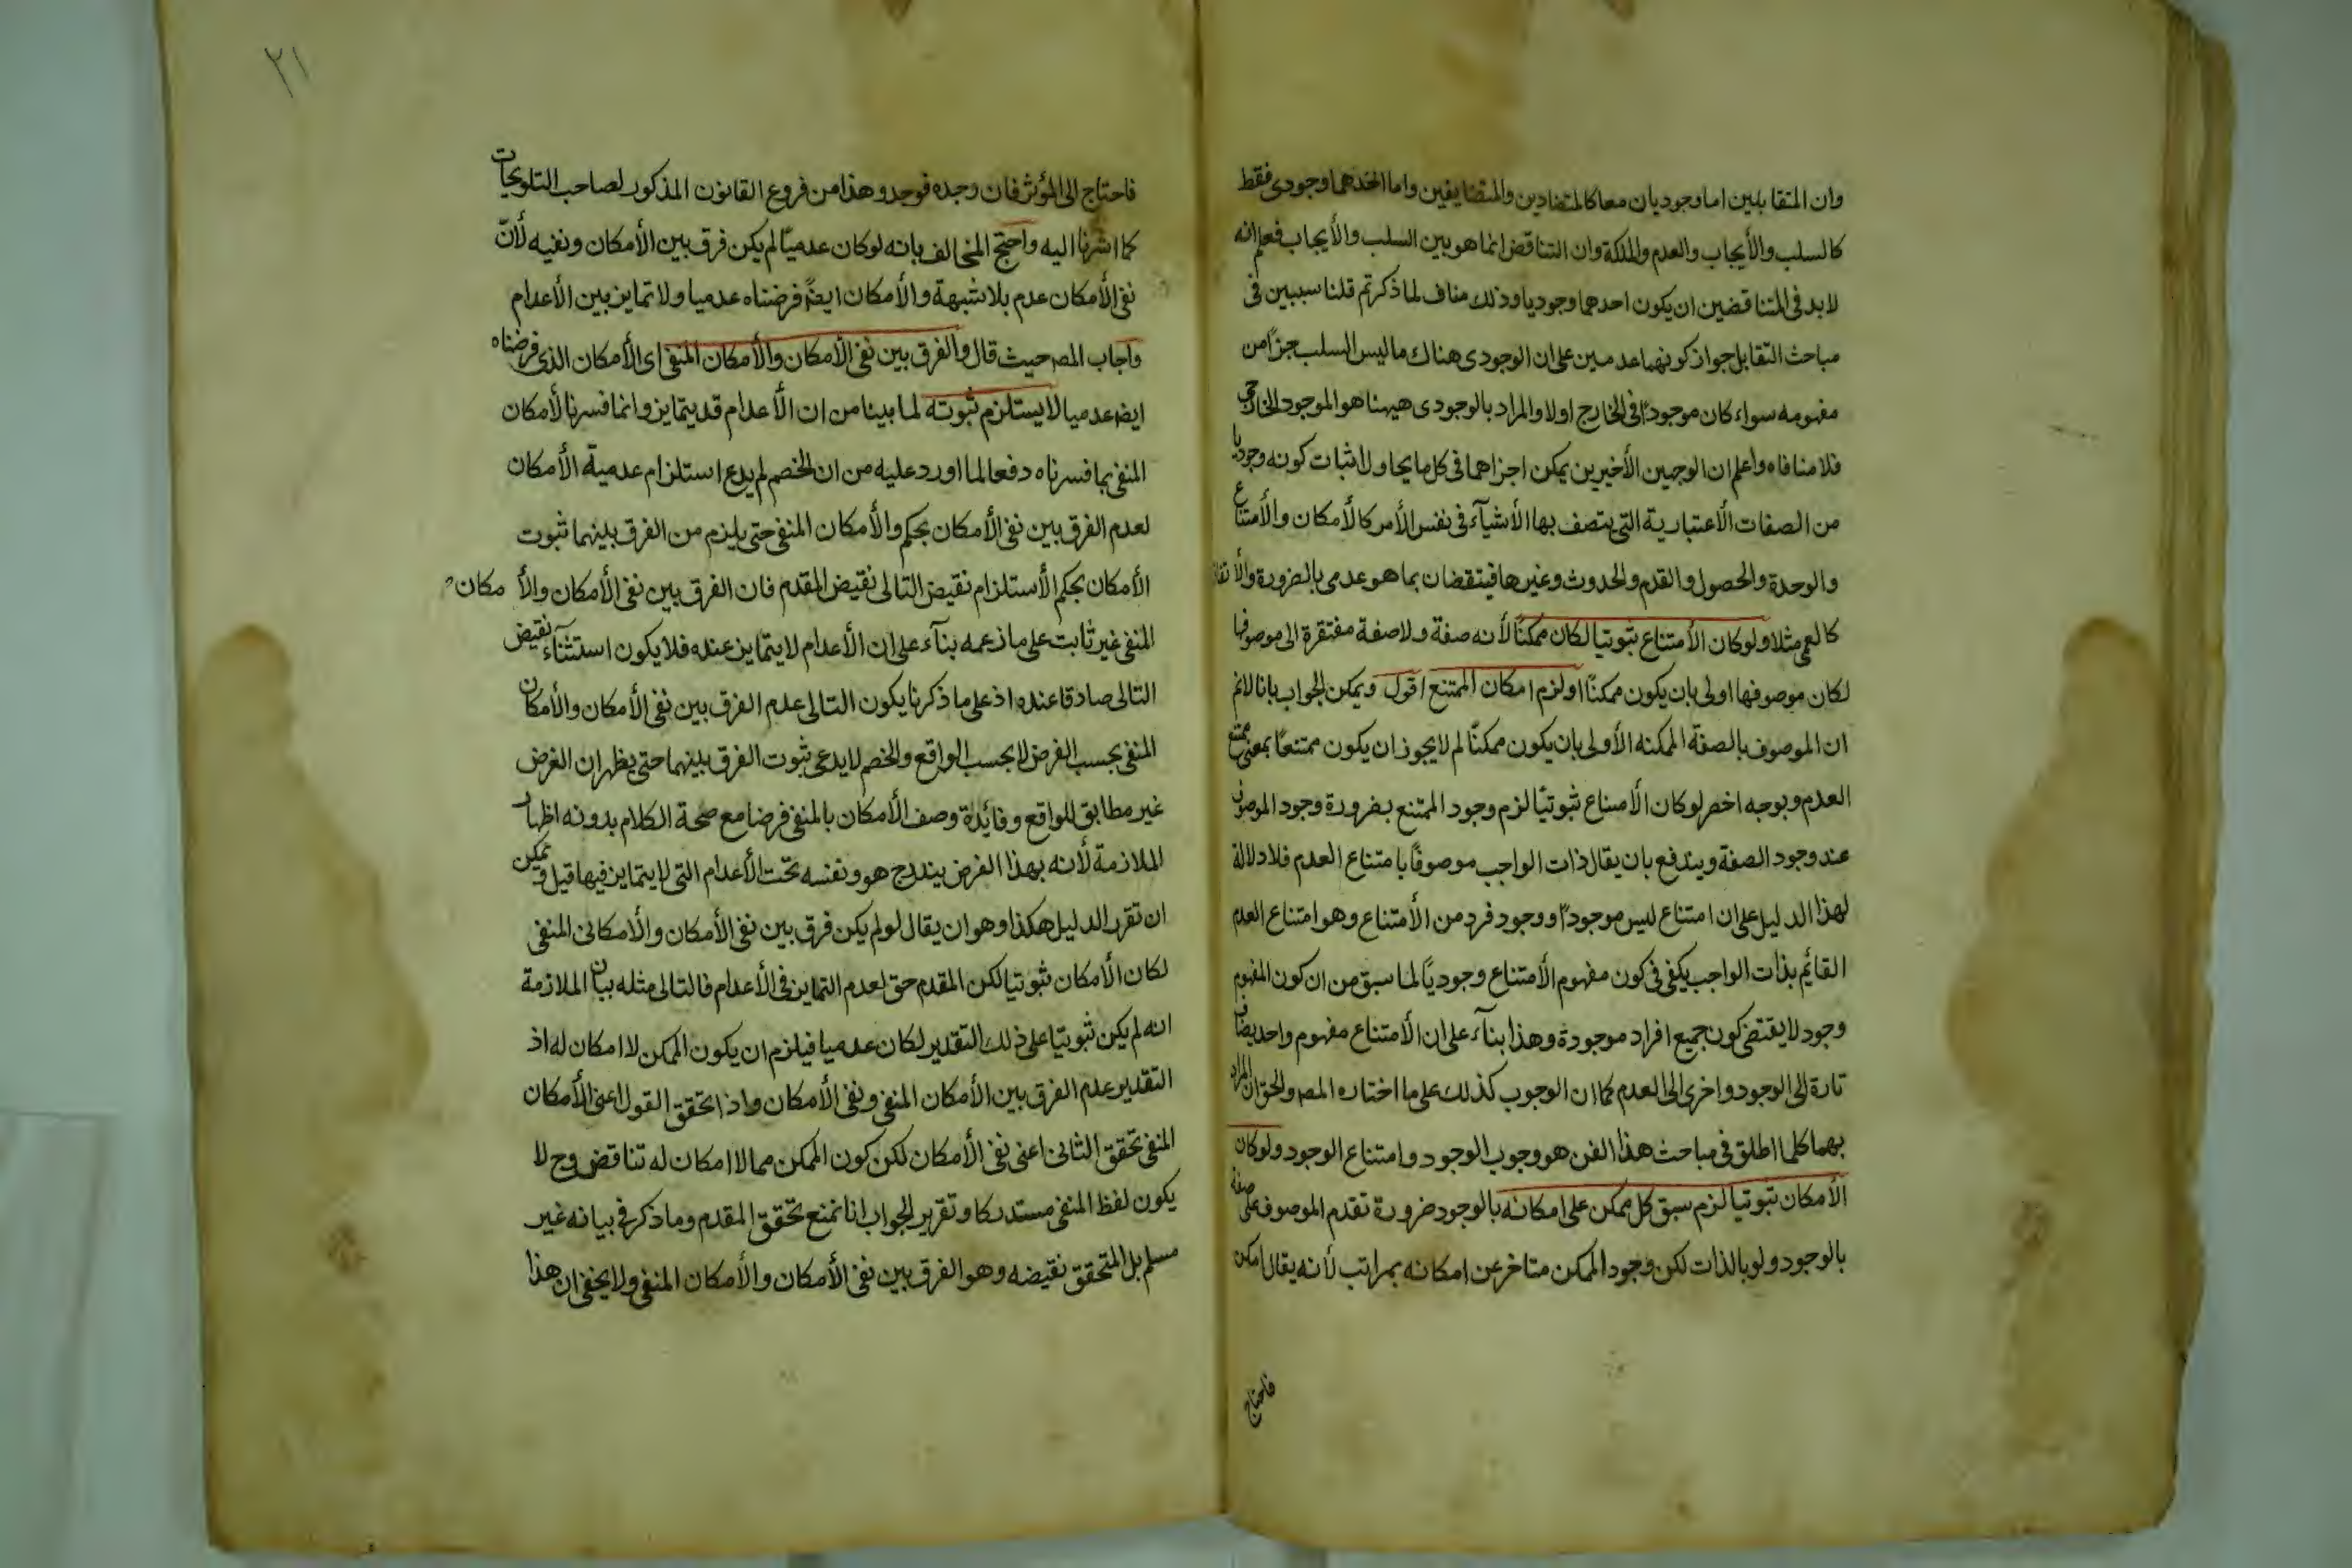 وان المتقابلين اما وجوديان معا كالمتضادين والمتضايفين واما احدهما وجودى فقط
كالسلب والأيجاب والعدم والملكة وان التناقض انما هو بين السلب والأيجاب فعلم انه
لا بد فى المتناقضين ان يكون احدهما وجوديا وذلك مناف لما ذكرتم قلنا سيبين فى
مباحث التقابل جواز كونهما عدمين على ان الوجودى هناك ما ليس السلب جزأ من
مفهومه سواء كان موجودًا فى الخارج اولا والمراد بالوجودى هيهنا هو الموجود الخارجى
فلا منافاه واعلم ان الوجهين الأخيرين يمكن اجراهما فى كل ما يحاول اثبات كونه وجوديا
من الصفات الأعتبارية التى يتصف بها الأشيآء فى نفس الأمر كالأمكان والأمتناع
والوحدة والحصول والقدم والحدوث وغيرها فينتقضان بما هو عدمى بالضرورة والأتفاق
كالعمى مثلا ولو كان الأمتناع ثبوتيا لكان ممكنًا لأنه صفة والصفة مفتقرة الى موصوفها
لكان موصوفها اولى بان يكون ممكنًا او لزم امكان الممتنع اقول ويمكن الجواب بانا لانم
ان الموصوف بالصفة الممكنه الأولى بان يكون ممكنًا لم لا يجوز ان يكون ممتنعًا بمعنى ممتنع
العدم وبوجه اخصر لو كان الأمتناع ثبوتيًا لزم وجود الممتنع بضرورة وجود الموصوف
عند وجود الصفة ويندفع بان يقال ذات الواجب موصوفًا بامتناع العدم فلا دلالة
لهذا الدليل على ان امتناع ليس موجودًا ووجود فرد من الأمتناع وهو امتناع العدم
القائم بذات الواجب يكفى فى كون مفهوم الأمتناع وجوديًا لما سبق من ان كون المفهوم
وجود لا يقتضى كون جميع افراد موجودة وهذا بنآء على ان الأمتناع مفهوم واحد يضاف
تارة الى الوجود واخرى الى العدم كما ان الوجوب كذلك على ما اختاره المص والحق ان المراد
بهما كلما اطلق فى مباحث هذا الفن هو وجوب الوجود وامتناع الوجود ولو كان
الأمكان ثبوتيا لزم سبق كل ممكن على امكانه بالوجود ضرورة تقدم الموصوف على صفة
بالوجود ولو بالذات لكن وجود الممكن متاخر عن امكانه بمراتب لأنه يقال امكن
فاحتاج
٢١
فاحتاج الى المؤثر فان وجده فوجد وهذا من فروع القانون المذكور لصاحب التلويحات
كما اشرنا اليه واحتج المخالف بانه لو كان عدميًا لم يكن فرق بين الأمكان ونفيه لأنّ
نفى الأمكان عدم بلا شبهة والأمكان ايضًا فرضناه عدميا ولا تمايز بين الأعدام
واجاب المص حيث قال والفرق بين نفى الأمكان والأمكان المنفى اى الأمكان الذى فرضناه
ايضا عدميا لا يستلزم ثبوته لما بينا من ان الأعدام قد يتمايز وانما فسرنا الأمكان
المنفى بما فسرناه دفعا لما اورد عليه من ان الخصم لم يدع استلزام عدمية الأمكان
لعدم الفرق بين نفى الأمكان بحكم والأمكان المنفى حتى يلزم من الفرق بينهما ثبوت
الأمكان بحكم الأستلزام نقيض التالى نقيض المقدم فان الفرق بين نفى الأمكان والأمكان
المنفى غير ثابت على ما زعمه بنآء على ان الأعدام لا يتمايز عنده فلا يكون استثنآء نقيض
التالى صادقا عنده اذ على ما ذكرنا يكون التالى عدم الفرق بين نفى الأمكان والأمكان
المنفى بحسب الفرض لا بحسب الواقع والخصم لا يدعى ثبوت الفرق بينهما حتى يظهر ان الفرض
غير مطابق للواقع وفائدة وصف الأمكان بالمنفى فرضا مع صحة الكلام بدونه اظهار
الملازمة لأنه بهذا الفرض يندرج هو ونفسه تحت الأعدام التى لا يتمايز فيها قيل ويمكن
ان تقرر الدليل هكذا وهو ان يقال لو لم يكن فرق بين نفى الأمكان والأمكان المنفى
لكان الأمكان ثبوتيا لكن المقدم حق لعدم التمايز فى الأعدام فالتالى مثله بيان الملازمة
انه لم يكن ثبوتيا على ذلك التقدير لكان عدميا فيلزم ان يكون الممكن لا امكان له اذ
التقدير عدم الفرق بين الأمكان المنفى ونفى الأمكان واذا تحقق القول اعنى الأمكان
المنفى تحقق الثانى اعنى نفى الأمكان لكن كون الممكن مما لا امكان له تناقض وح لا
يكون لفظ المنفى مستدركا وتقرير الجواب انا نمنع تحقق المقدم وما ذكر فى بيانه غير
مسلم بل المتحقق نقيضه وهو الفرق بين نفى الأمكان والأمكان المنفى ولا يخفى ان هذا